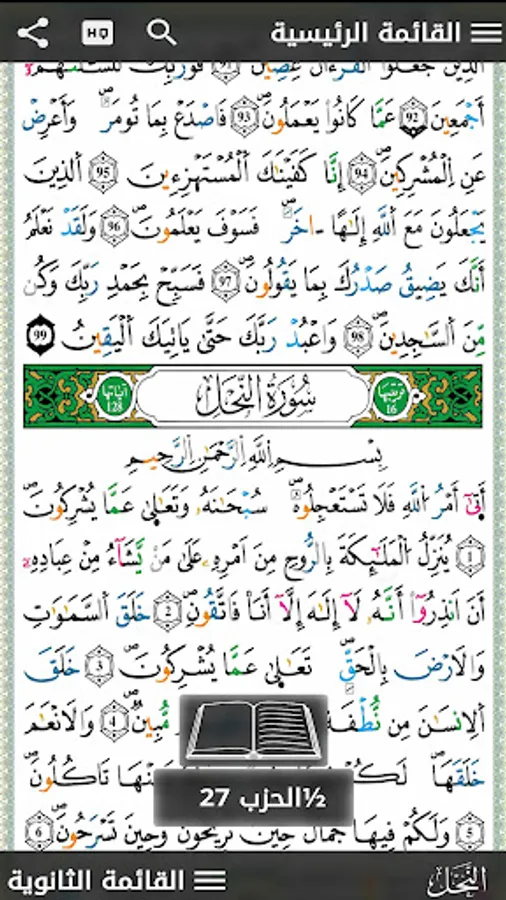 القائمة الرئيسية
HQ
اَ۬لذِينَ جَعَلُواْ اُ۬لْقُرْءَانَ عِضِينَ 91 فَوَرَبِّكَ لَنَسْـَٔلَنَّهُمُۥٓ
أَجْمَعِينَ 92 عَمَّا كَانُواْ يَعْمَلُونَ 93 فَاصْدَعْ بِمَا تُومَرُ وَأَعْرِضْ
عَنِ اِ۬لْمُشْرِكِينَ 94 إِنَّا كَفَيْنَٰكَ اَ۬لْمُسْتَهْزِءِينَ 95 اَ۬لذِينَ
يَجْعَلُونَ مَعَ اَ۬للَّهِ إِلَٰهاً اٰخَرَ فَسَوْفَ يَعْلَمُونَ 96 وَلَقَدْ نَعْلَمُ
أَنَّكَ يَضِيقُ صَدْرُكَ بِمَا يَقُولُونَ 97 فَسَبِّحْ بِحَمْدِ رَبِّكَ وَكُن
مِّنَ اَ۬لسَّٰجِدِينَ 98 وَاعْبُدْ رَبَّكَ حَتَّىٰ يَاتِيَكَ اَ۬لْيَقِينُ 99
ترتيبها 16 سُورَةُ النَّحْلِ آياتها 128
بِسْمِ اِ۬للَّهِ اِ۬لرَّحْمَٰنِ اِ۬لرَّحِيمِ
أَتَىٰٓ أَمْرُ اُ۬للَّهِ فَلَا تَسْتَعْجِلُوهُ سُبْحَٰنَهُۥ وَتَعَٰلَىٰ عَمَّا يُشْرِكُونَ
1 يُنَزِّلُ اُ۬لْمَلَٰٓئِكَةَ بِالرُّوحِ مِنَ اَمْرِهِۦ عَلَىٰ مَنْ يَّشَآءُ مِنْ عِبَادِهِۦٓ
أَنَ اَنذِرُوٓاْ أَنَّهُۥ لَآ إِلَٰهَ إِلَّآ أَنَا فَاتَّقُونِ 2 خَلَقَ اَ۬لسَّمَٰوَٰتِ
وَالَارْضَ بِالْحَقِّ تَعَٰلَىٰ عَمَّا يُشْرِكُونَ 3 خَلَقَ
اَ۬لِانسَٰنَ مِن نُّطْفَةٖ مُّبِينٞ 4 وَالَانْعَٰمَ
خَلَقَهَا لَكُمْ تَاكُلُونَ
5 وَلَكُمْ فِيهَا جَمَالٌ حِينَ تُرِيحُونَ وَحِينَ تَسْرَحُونَ 6
½الحزب 27
النَّحْل
القائمة الثانوية